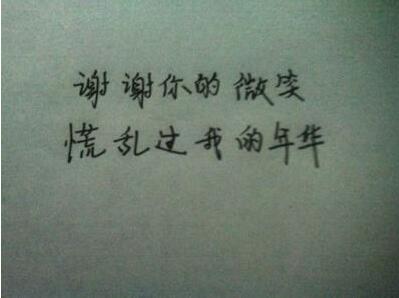 谢谢你的微笑
慌乱过我的年华